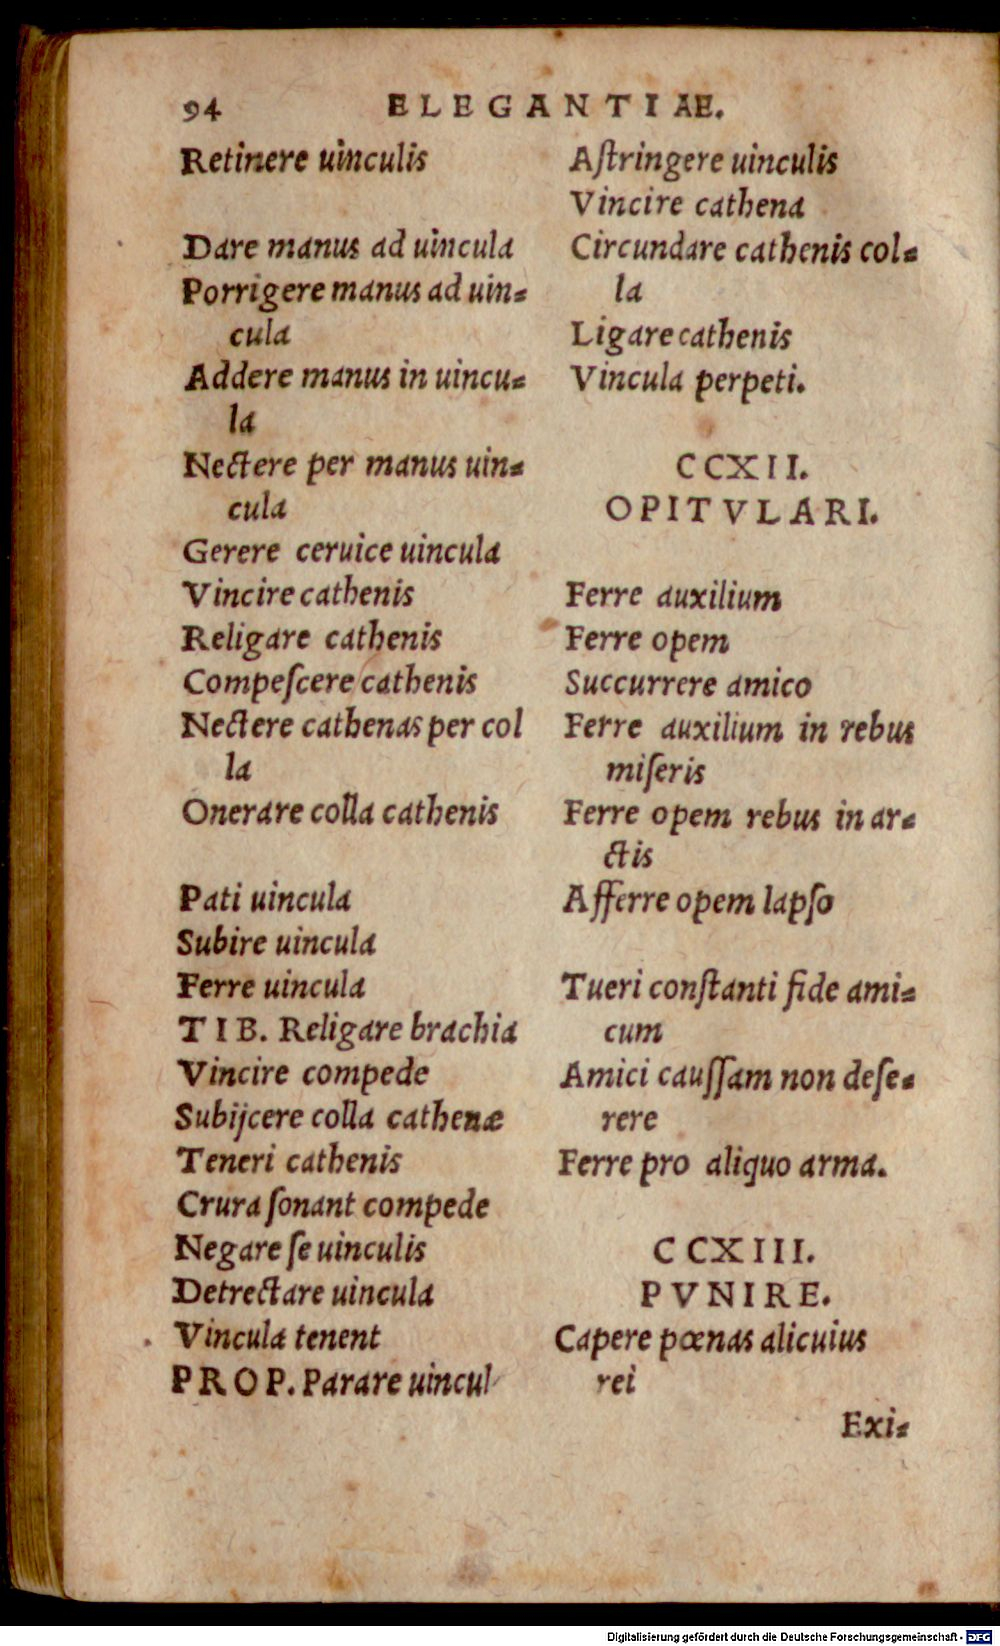 94 ELEGANTIAE.
Retinere uinculis
Dare manus ad uincula
Porrigere manus ad uin=
cula
Addere manus in uincu=
la
Nectere per manus uin=
cula
Gerere ceruice uincula
Vincire cathenis
Religare cathenis
Compeſcere cathenis
Nectere cathenas per col
la
Onerare colla cathenis
Pati uincula
Subire uincula
Ferre uincula
TIB. Religare brachia
Vincire compede
Subijcere colla cathenæ
Teneri cathenis
Crura ſonant compede
Negare ſe uinculis
Detrectare uincula
Vincula tenent
PROP. Parare uincul
Aſtringere uinculis
Vincire cathena
Circundare cathenis col=
la
Ligare cathenis
Vincula perpeti.
CCXII.
OPITVLARI.
Ferre auxilium
Ferre opem
Succurrere amico
Ferre auxilium in rebus
miſeris
Ferre opem rebus in ar=
ctis
Afferre opem lapſo
Tueri conſtanti fide ami=
cum
Amici cauſſam non deſe=
rere
Ferre pro aliquo arma.
CCXIII.
PVNIRE.
Capere pœnas alicuius
rei
Exi=
Digitalisierung gefördert durch die Deutsche Forschungsgemeinschaft - DFG